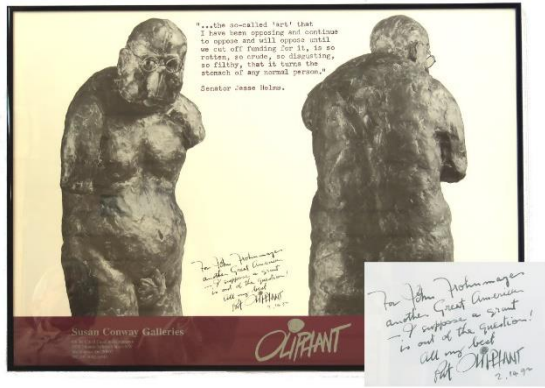 "...the so-called 'art' that
I have been opposing and continue
to oppose and will oppose until
we cut off funding for it, is so
rotten, so crude, so disgusting,
so filthy, that it turns the
stomach of any normal person."
Senator Jesse Helms.
For John Frohnmayer
another Great American
— I suppose a grant
is out of the question!
All my best
Pat OLIPHANT
2.14.92
Susan Conway Galleries
OLIPHANT
For John Frohnmayer
another Great American
— I suppose a grant
is out of the question!
All my best
Pat OLIPHANT
2.14.92